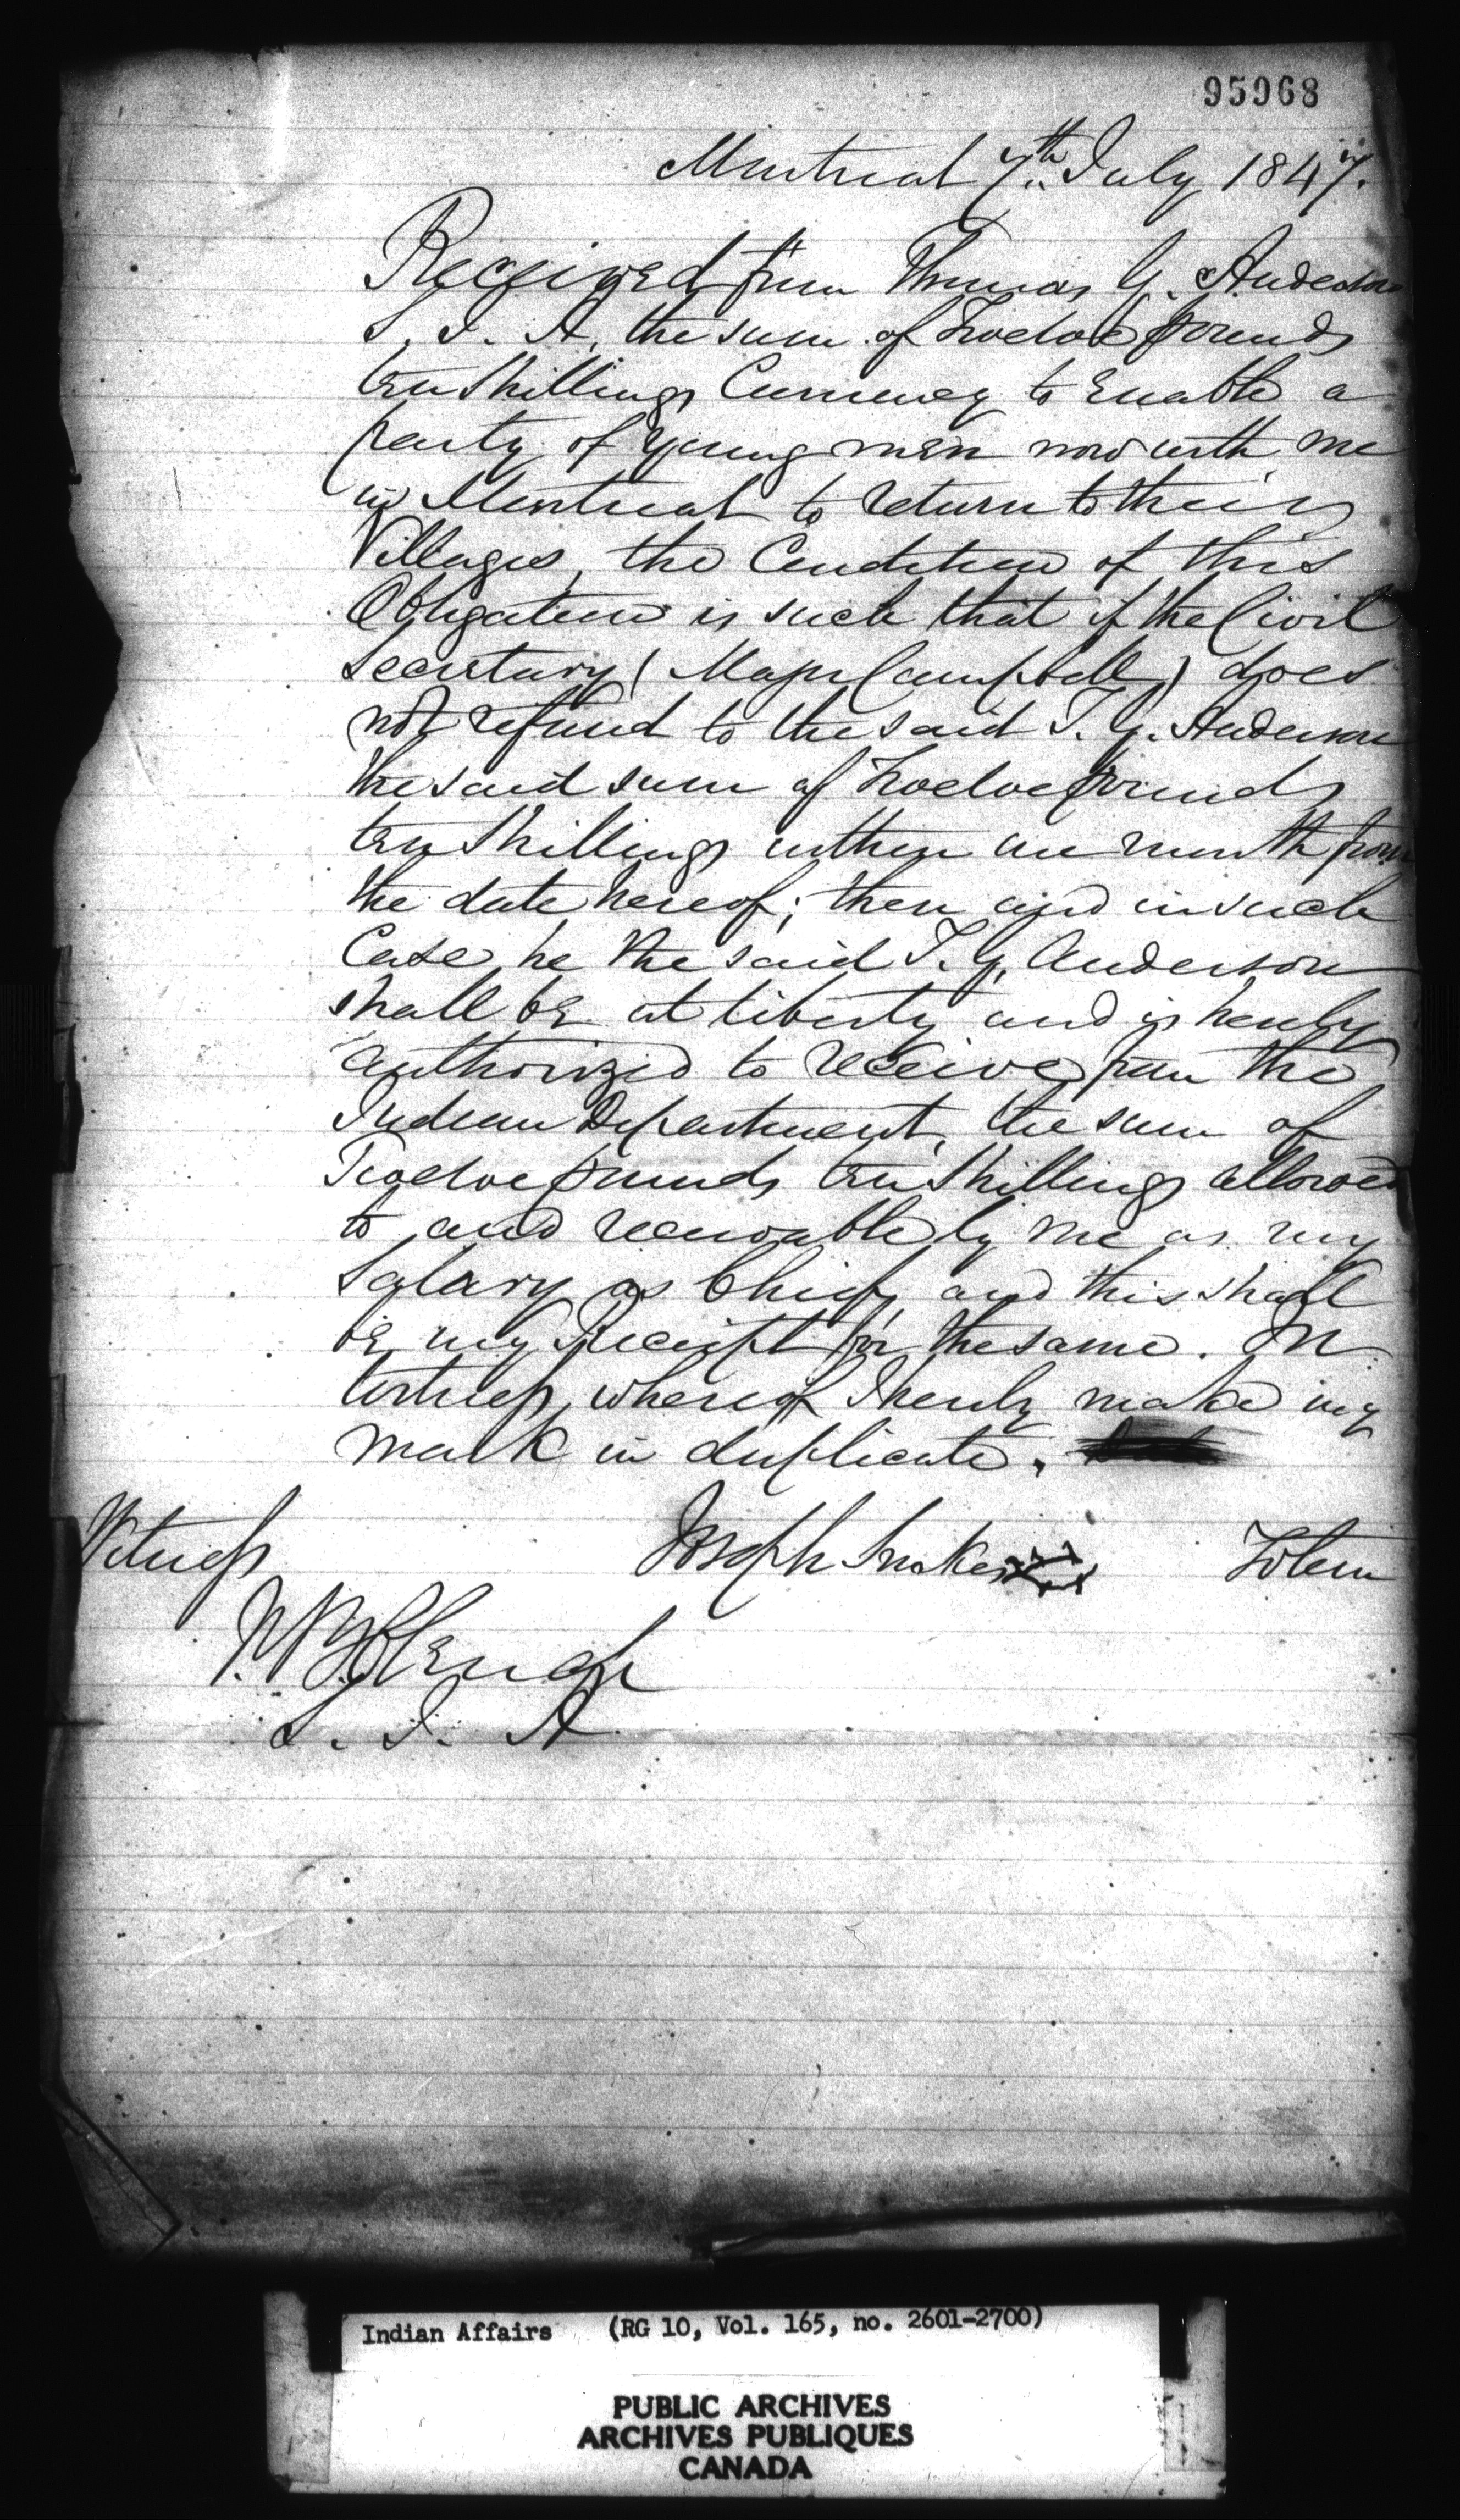 95968
Montreal 7th July 1847.
Received from Thomas G. Anderson
S. I. A. the sum of Twelve pounds
ten Shillings Currency to Enable a
party of young men now with me
in Montreal to return to their
Villages, the Condition of this
Obligation is such that if the Civil
Secretary (Major Campbell) does
not refund to the said T. G. Anderson
the said sum of Twelve pounds
ten Shillings within one month from
the date hereof; then and in such
Case he the said T. G. Anderson
shall be at liberty and is hereby
authorized to receive from the
Indian Department, the sum of
Twelve pounds ten Shillings allowed
to and receivable by me as my
Salary as Chief and this shall
be my Receipt for the same. In
witness whereof I hereby make my
mark in duplicate.
Witness Joseph Snake Totem
S. I. A.
Indian Affairs (RG 10, Vol. 165, no. 2601-2700)
PUBLIC ARCHIVES
ARCHIVES PUBLIQUES
CANADA